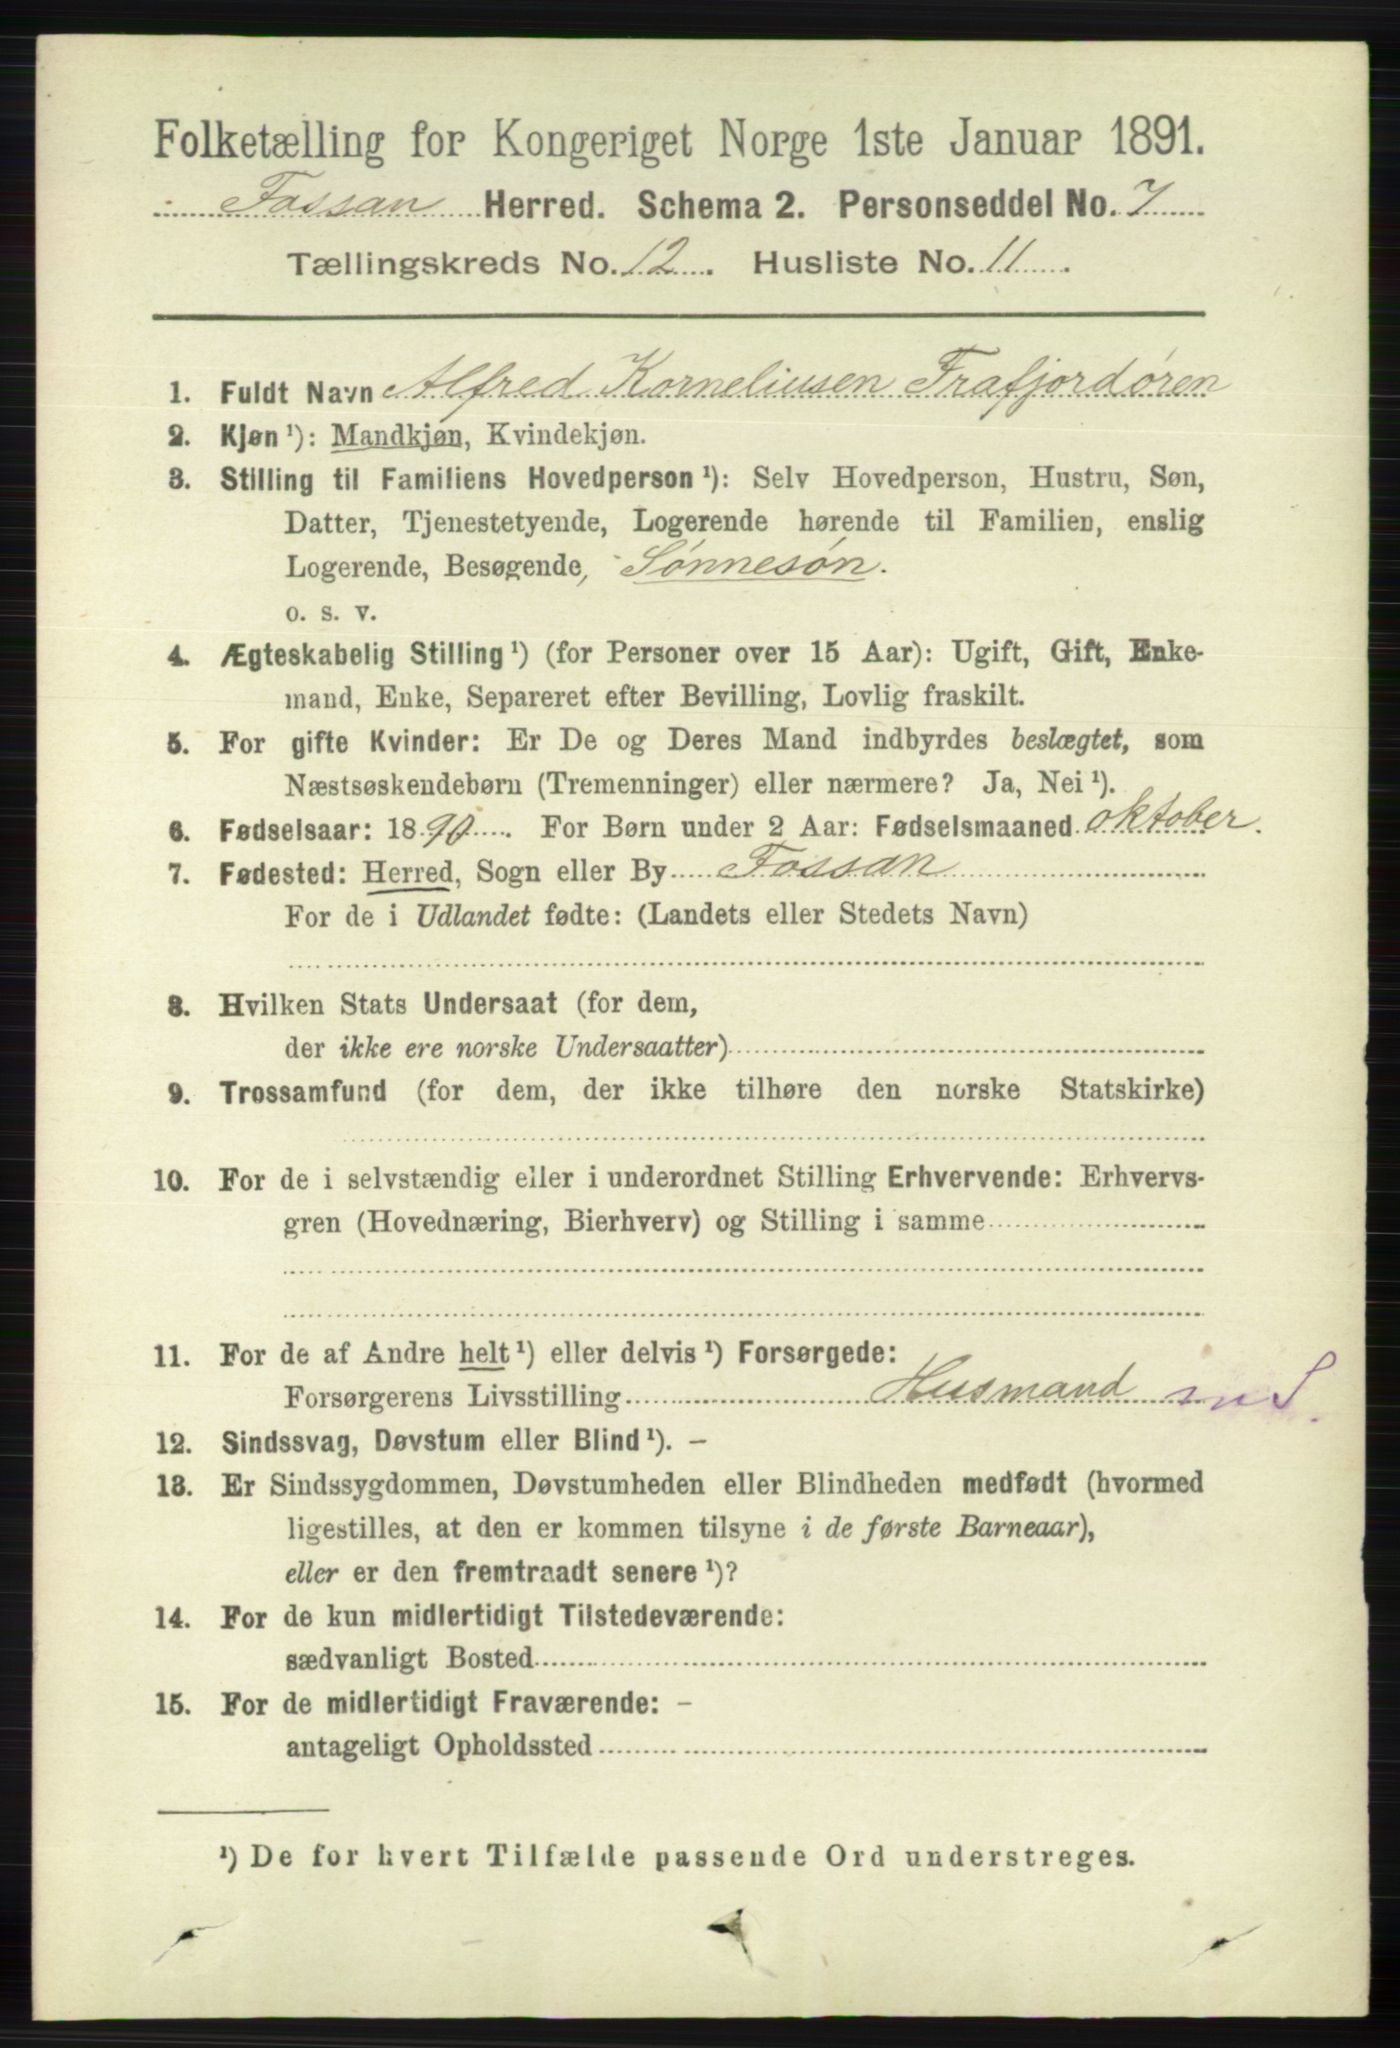 Folketælling for Kongeriget Norge 1ste Januar 1891.
Fossan Herred. Schema 2. Personseddel No. 7
Tællingskreds No. 12. Husliste No. 11.
1. Fuldt Navn Alfred Korneliusen Frafjordøren
2. Kjøn ¹): Mandkjøn, Kvindekjøn.
3. Stilling til Familiens Hovedperson ¹): Selv Hovedperson, Hustru, Søn,
Datter, Tjenestetyende, Logerende hørende til Familien, enslig
Logerende, Besøgende, Sønnesøn.
o. s. v.
4. Ægteskabelig Stilling ¹) (for Personer over 15 Aar): Ugift, Gift, Enke-
mand, Enke, Separeret efter Bevilling, Lovlig fraskilt.
5. For gifte Kvinder: Er De og Deres Mand indbyrdes beslægtet, som
Næstsøskendebørn (Tremenninger) eller nærmere? Ja, Nei ¹).
6. Fødselsaar: 1890. For Børn under 2 Aar: Fødselsmaaned oktober.
7. Fødested: Herred, Sogn eller By Fossan
For de i Udlandet fødte: (Landets eller Stedets Navn)
8. Hvilken Stats Undersaat (for dem,
der ikke ere norske Undersaatter)
9. Trossamfund (for dem, der ikke tilhøre den norske Statskirke)
10. For de i selvstændig eller i underordnet Stilling Erhvervende: Erhvervs-
gren (Hovednæring, Bierhverv) og Stilling i samme
11. For de af Andre helt ¹) eller delvis ¹) Forsørgede:
Forsørgerens Livsstilling Husmand
12. Sindssvag, Døvstum eller Blind ¹). –
13. Er Sindssygdommen, Døvstumheden eller Blindheden medfødt (hvormed
ligestilles, at den er kommen tilsyne i de første Barneaar),
eller er den fremtraadt senere ¹)?
14. For de kun midlertidigt Tilstedeværende:
sædvanligt Bosted
15. For de midlertidigt Fraværende: –
antageligt Opholdssted
¹) De for hvert Tilfælde passende Ord understreges.